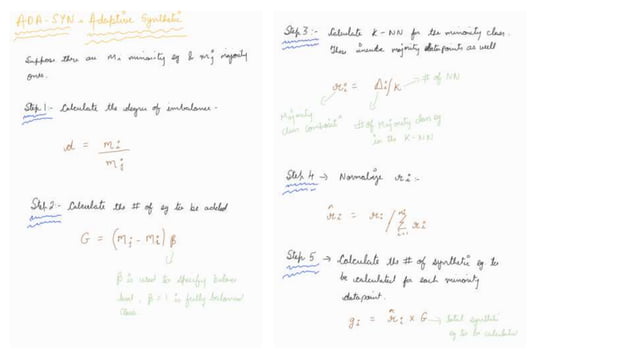 ADA-SYN - Adaptive Synthetic
Suppose there are mi minority eg & mj majority
ones.
Step 1:- Calculate the degree of imbalance -
d = mi / mj
Step 2:- Calculate the # of eg to be added
G = (mj - mi) β
β is used to specify balance
level, β = 1 is fully balanced
class.
Step 3:- Calculate K-NN for the minority class.
majority datapoints as well
ri = Δi/K → # of NN
Majority
class
# of Majority class eg
in the K-NN
Step 4 → Normalize ri :-
r̂i = ri / Σ ri
i=1
Step 5 → Calculate the # of synthetic eg. to
be calculated for each minority
datapoint.
gi = r̂i × G → total synthetic
eg to be calculated